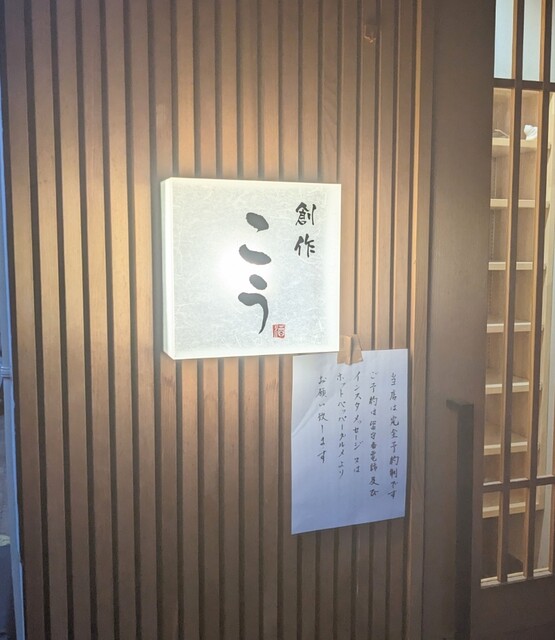 創作
こう
当店は完全予約制です
ご予約は留守番電話及び
インスタメッセージ又は
ホットペッパーグルメより
お願い致します